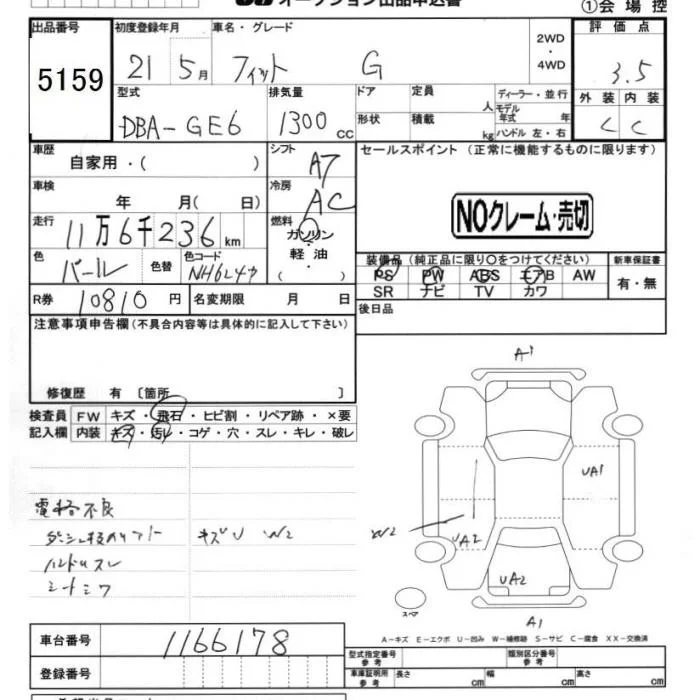 オークション出品申込書
①会場控
出品番号 初度登録年月 車名・グレード 2WD・4WD 評価点
5159 21 5月 フィット G 3.5
型式 排気量 ドア 定員 人 ディーラー・並行 外装 内装
DBA-GE6 1300cc 形状 積載 kg モデル年式 年 ハンドル 左・右 C C
車歴 自家用・( ) シフト A7 セールスポイント (正常に機能するものに限ります)
車検 年 月( 日) 冷房 AC
NOクレーム・売切
走行 11万6千236km 燃料 ガソリン・軽油・( )
色 パール 色替 色コード NH624P
装備品(純正品に限り○をつけてください) 新車保証書
PS PW ABS エアB AW 有・無
SR ナビ TV カワ
R券 10810円 名変期限 月 日 後日品
注意事項申告欄(不具合内容等は具体的に記入して下さい)
修復歴 有 〔箇所 〕
検査員 FW キズ・飛石・ヒビ割・リペア跡・×要
記入欄 内装 キズ・汚レ・コゲ・穴・スレ・キレ・破レ
A1
UA1
W2 UA2
UA2
スペア
A1
電格不良
キズU W2
ハンドルスレ
シートシワ
A-キズ E-エクボ U-凹み W-補修跡 S-サビ C-腐食 XX-交換済
車台番号 1166178
型式指定番号参考 類別区分番号参考
登録番号 車庫証明用参考 長さ cm 幅 cm 高さ cm